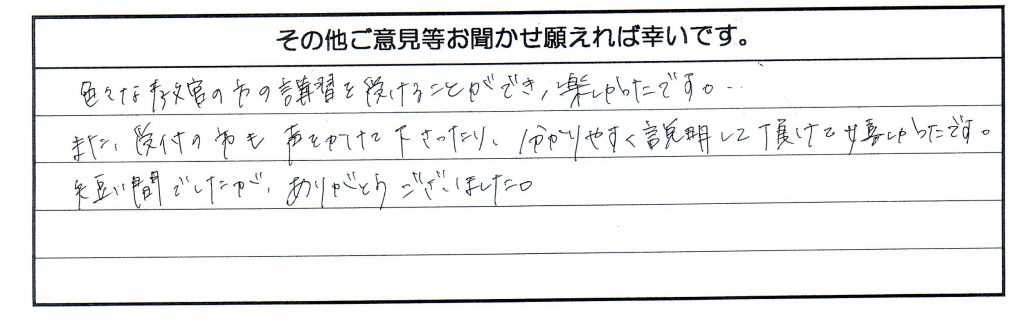 その他ご意見等お聞かせ願えれば幸いです。
色々な教官の方の講習を受けることができ、楽しかったです。
また、受付の方も声をかけて下さったり、分かりやすく説明して頂けて嬉しかったです。
短い間でしたが、ありがとうございました。